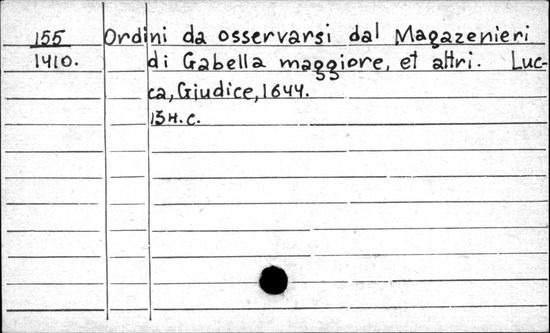 155 Ordini da osservarsi dal Magazenieri
1410. di Gabella maggiore, et altri. Luc-
ca, Giudice, 1644.
13H.c.